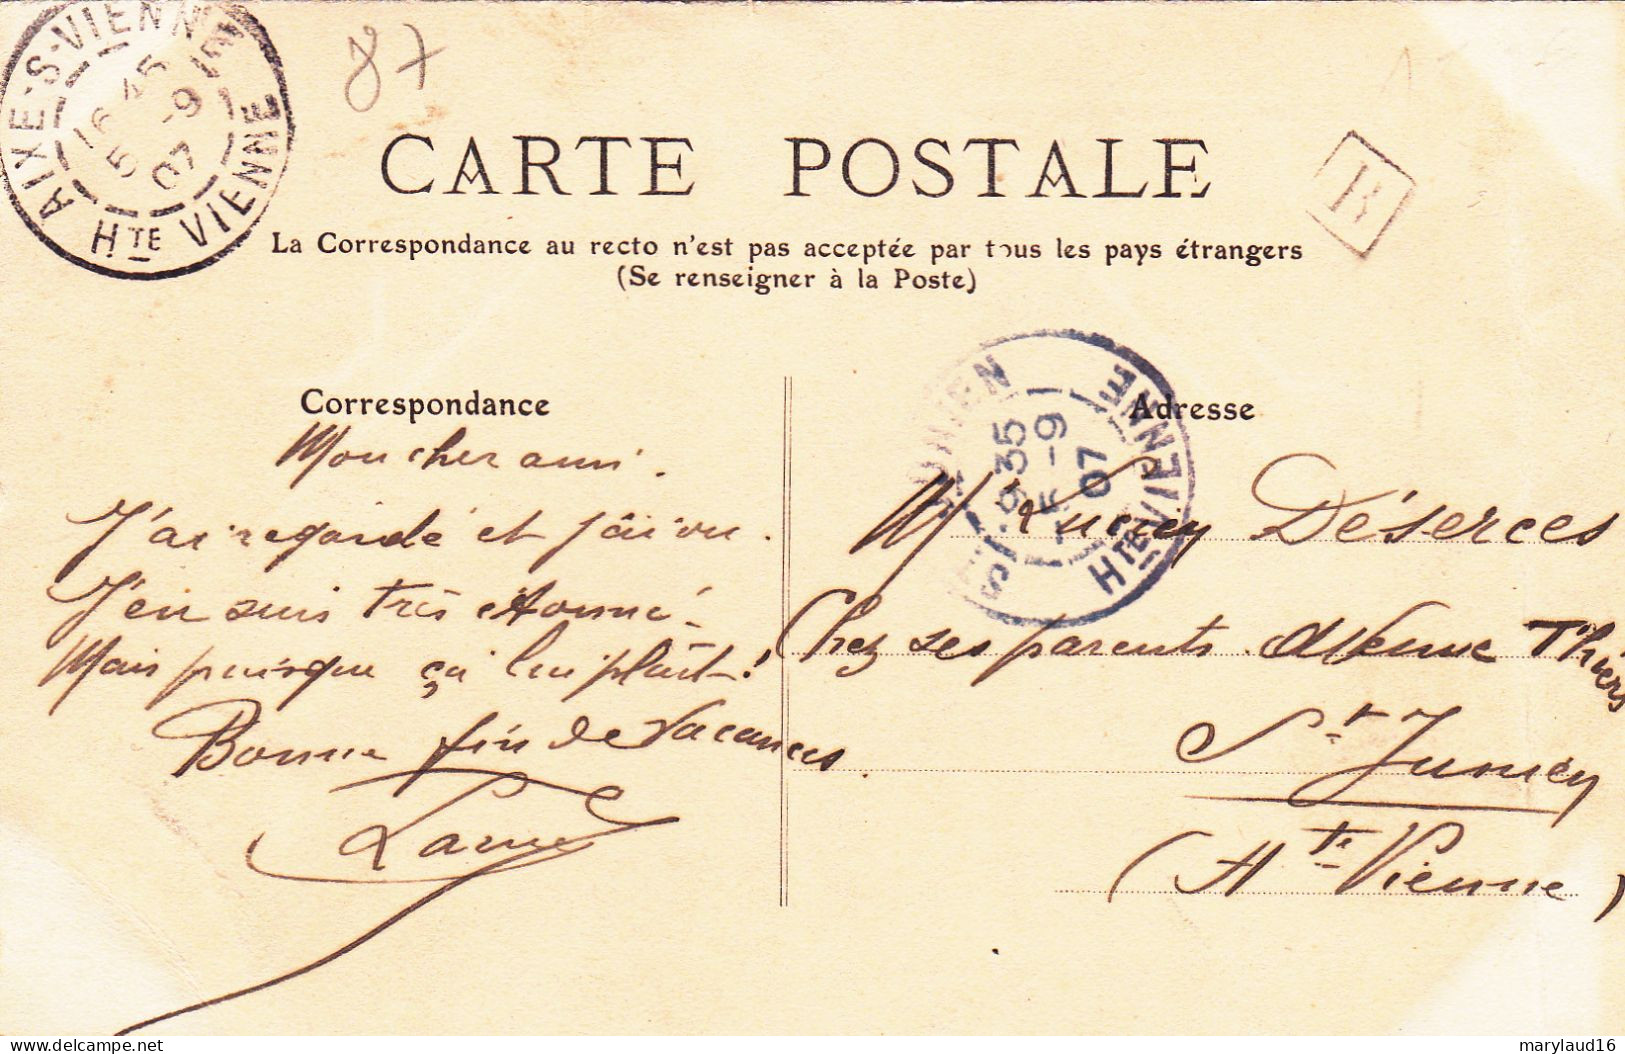 AIXE-S-VIENNE
16 45
5 -9
07
HTE VIENNE
87
CARTE POSTALE
B
La Correspondance au recto n'est pas acceptée par tous les pays étrangers
(Se renseigner à la Poste)
Correspondance
Mon cher ami.
J'ai regardé et j'ai vu.
J'en suis très étonné.
Mais puisque ça lui plaît!
Bonne fin de vacances
Adresse
JUNIEN
9 35
-9
07
HTE VIENNE
M Déserces
Chez ses parents. Avenue Thiers
St Junien
(Hte Vienne)
marylaud16